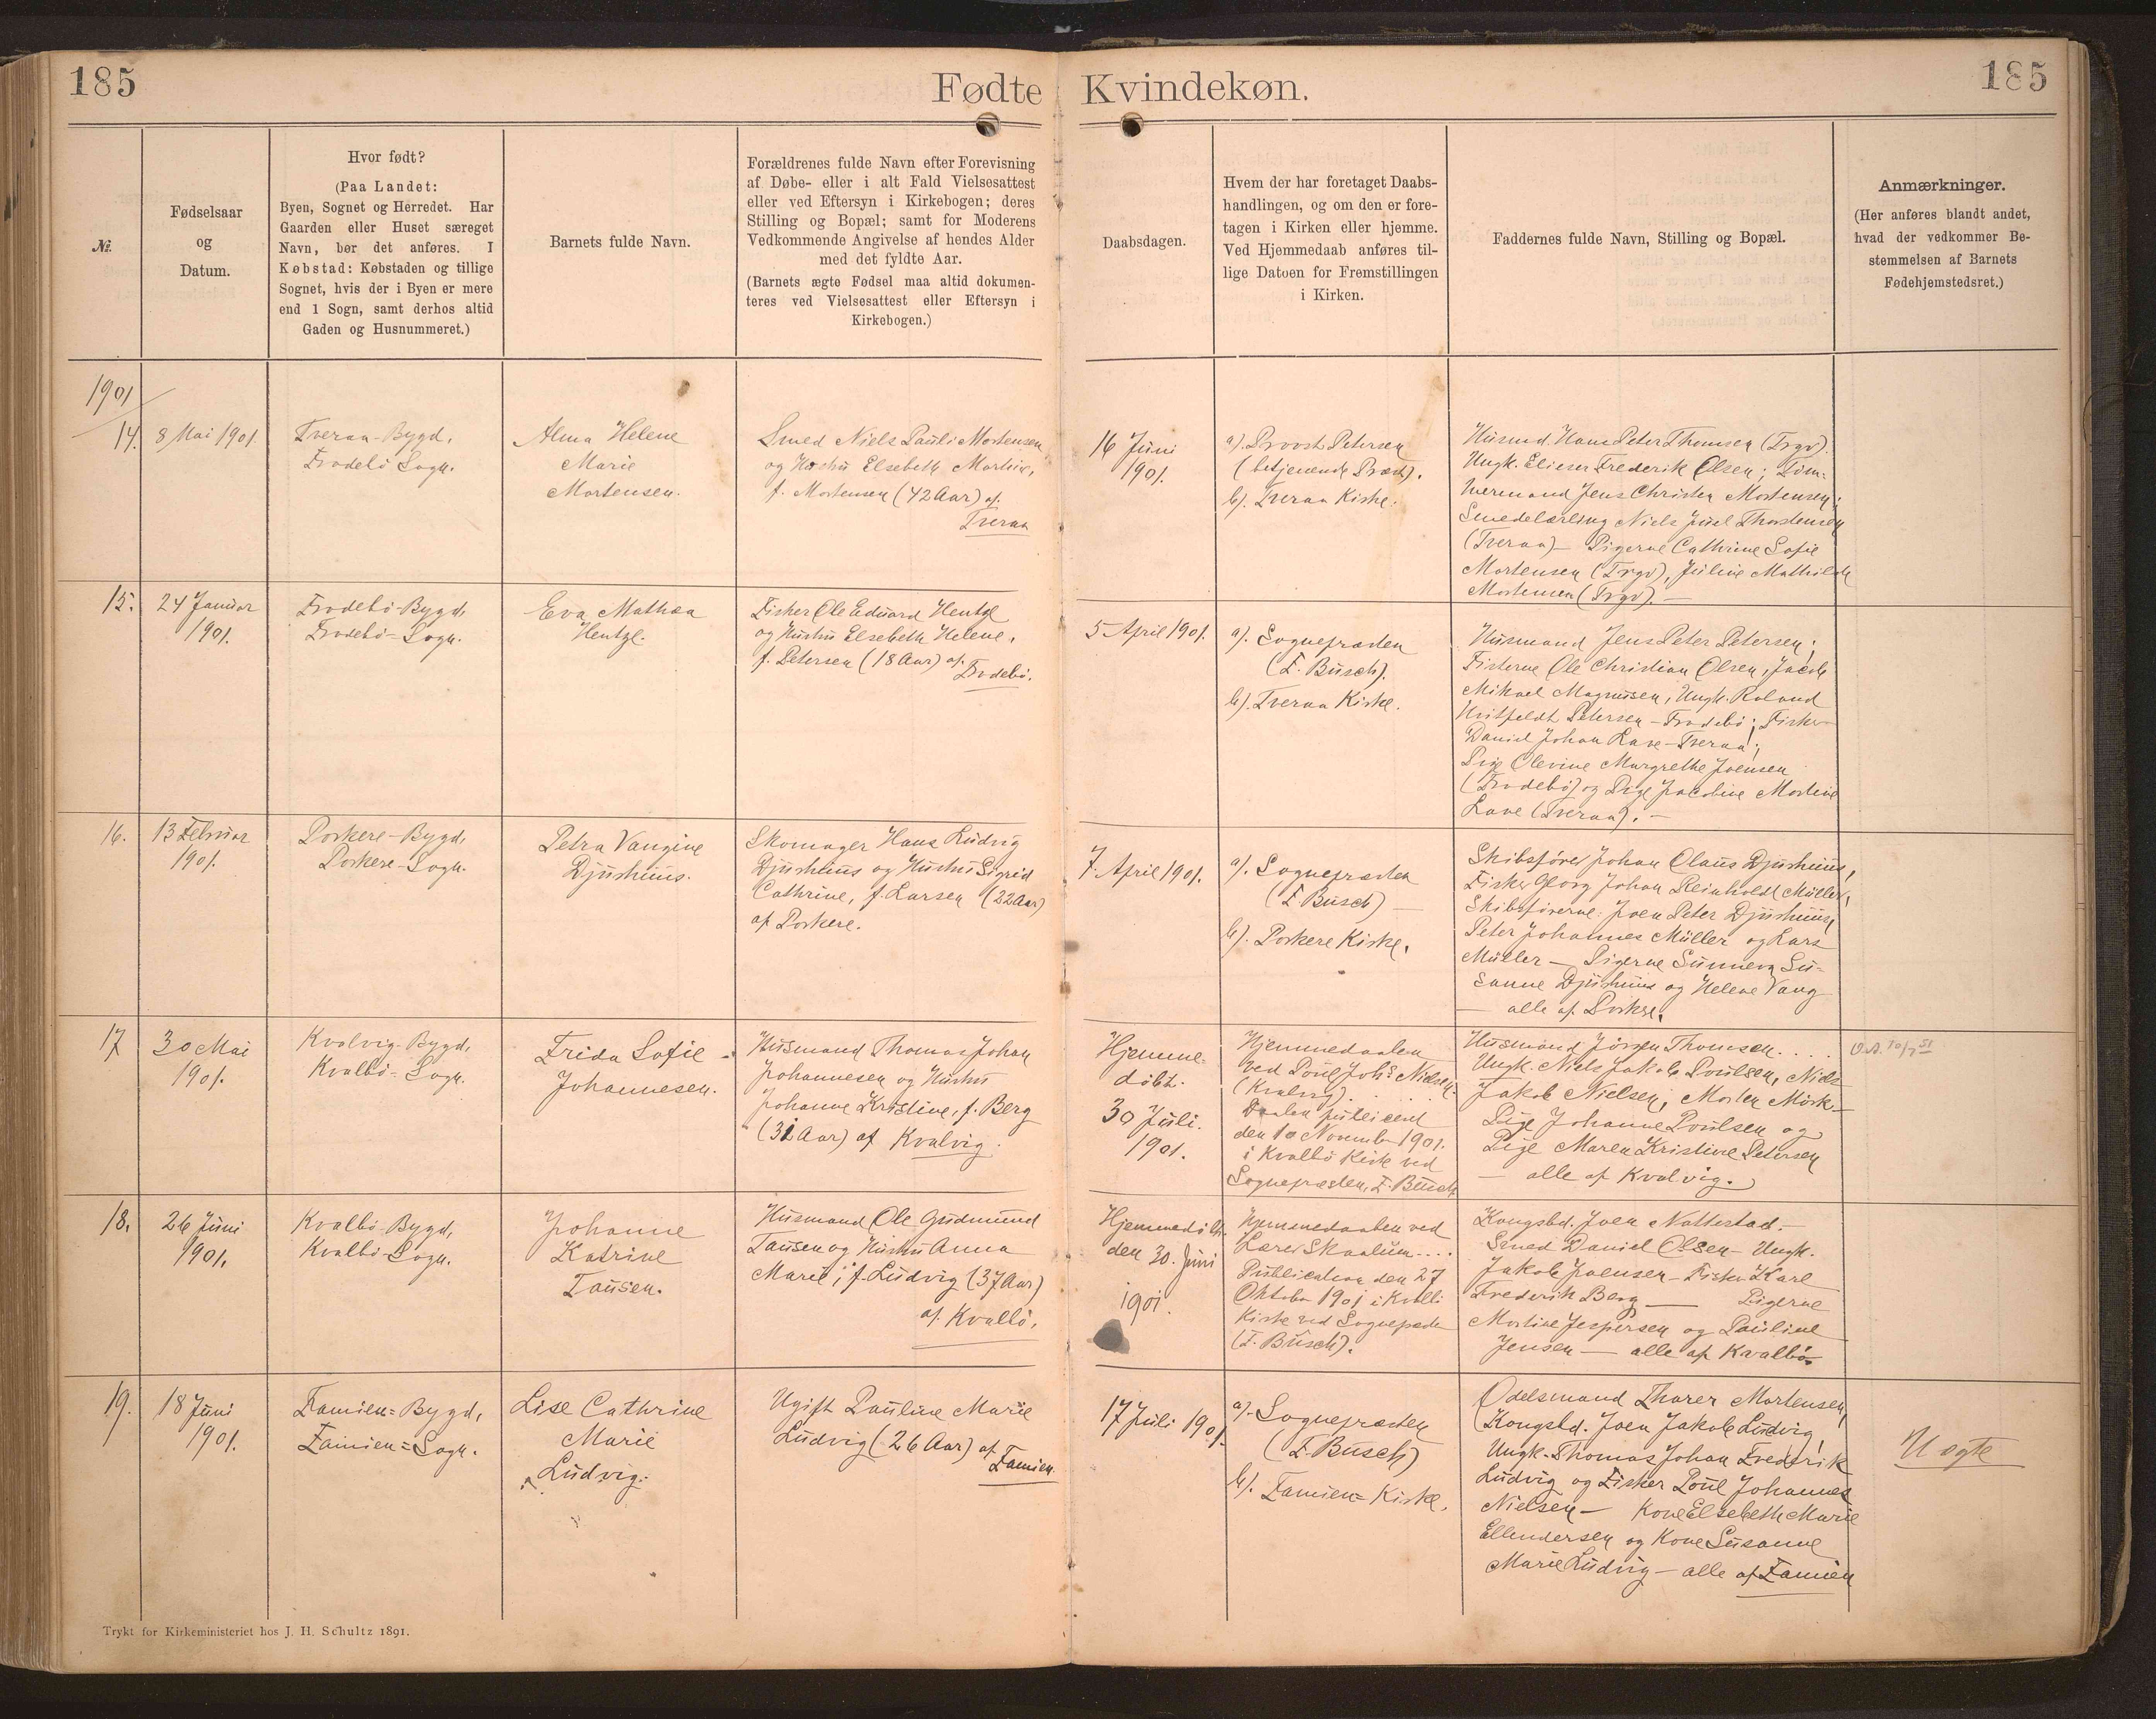 185
Fødte
Kvindekøn.
185
№.
Fødselsaar
og
Datum.
Hvor født?
(Paa Landet:
Byen, Sognet og Herredet. Har
Gaarden eller Huset særeget
Navn, bør det anføres. I
Købstad: Købstaden og tillige
Sognet, hvis der i Byen er mere
end 1 Sogn, samt derhos altid
Gaden og Husnummeret.)
Barnets fulde Navn.
Forældrenes fulde Navn efter Forevisning
af Døbe- eller i alt Fald Vielsesattest
eller ved Eftersyn i Kirkebogen; deres
Stilling og Bopæl; samt for Moderens
Vedkommende Angivelse af hendes Alder
med det fyldte Aar.
(Barnets ægte Fødsel maa altid dokumen-
teres ved Vielsesattest eller Eftersyn i
Kirkebogen.)
Daabsdagen.
Hvem der har foretaget Daabs-
handlingen, og om den er fore-
tagen i Kirken eller hjemme.
Ved Hjemmedaab anføres til-
lige Datoen for Fremstillingen
i Kirken.
Faddernes fulde Navn, Stilling og Bopæl.
Anmærkninger.
(Her anføres blandt andet,
hvad der vedkommer Be-
stemmelsen af Barnets
Fødehjemstedsret.)
1901
14.
8 Mai 1901.
Tveraa-Bygd,
Frodebö Sogn.
Alma Helene
Marie
Mortensen.
Smed Niels Pauli Mortensen
og Hustru Elsebeth Martine,
f. Mortensen (42 Aar) af
Tveraa
16 Juni
1901.
a). Provst Petersen
(betjenende Præst).
b). Tveraa Kirke.
Husmd. Hans Peter Thomsen (Trgv).
Ungk. Elieser Frederik Olsen; Töm-
mermand Jens Christen Mortensen;
Smedelærling Niels Juel Thorstensen
(Tveraa) — Pigerne Cathrine Sofie
Mortensen (Trgv), Juline Mathilde
Mortensen (Trgv). —
15.
24 Januar
1901.
Frodebö-Bygd,
Frodebö-Sogn.
Eva Mathea
Hentze.
Fisker Ole Eduard Hentze
og Hustru Elsebeth Helene,
f. Petersen (18 Aar) af
Frodebö.
5 April 1901.
a). Sognepræsten
(F. Busch).
b). Tveraa Kirke.
Husmand Jens Peter Petersen;
Fiskerne Ole Christian Olsen, Jacob
Mikael Magnusen, Ungk. Roland
Hvitfeldt Petersen - Frodebö; Fisker
Daniel Johan Lave - Tveraa;
Pige Olevine Margrethe Joensen
(Frodebö) og Pige Jacobine Mortine
Lave (Tveraa). —
16.
13 Februar
1901.
Porkere-Bygd,
Porkere-Sogn.
Petra Vangine
Djurhuus.
Skomager Hans Ludvig
Djurhuus og Hustru Sigrid
Cathrine, f. Larsen (22 Aar)
af Porkere.
7. April 1901.
a). Sognepræsten
(F. Busch) —
b). Porkere Kirke.
Skibsförer Johan Claus Djurhuus,
Fisker Georg Johan Reinholdt Müller,
Skibsförerne: Joen Peter Djurhuus,
Peter Johannes Müller og Lars
Müller — Pigerne Sunneva Su-
sanne Djurhuus og Helene Vang
— alle af Porkere.
17
30 Mai
1901.
Kvalvig-Bygd,
Kvalbö-Sogn.
Frida Sofie
Johannesen.
Husmand Thomas Johan
Johannesen og Hustru
Johanne Kristine, f. Berg
(31 Aar) af Kvalvig.
Hjemme-
döbt.
30 Juli.
1901.
Hjemmedaaben
ved Poul Johs Nielsen
(Kvalvig).
Daaben publiceret
den 10 November 1901.
i Kvalbö Kirke ved
Sognepræsten, F. Busch
Husmand Jörgen Thomsen....
Ungk. Niels Jakob Poulsen, Niels
Jakob Nielsen, Morten Mörk —
Pige Johanne Poulsen og
Pige Maren Kristine Petersen
— alle af Kvalvig.
D.A. 10/7 51
18.
26 Juni
1901.
Kvalbö-Bygd,
Kvalbö-Sogn.
Johanne
Katrine
Tausen.
Husmand Ole Gudmund
Tausen og Hustru Anna
Marie, f. Ludvig (37 Aar)
af Kvalbö.
Hjemmedöbt.
den 30. Juni
1901.
Hjemmedaaben ved
Lærer Skaalum....
Publication den 27
Oktober 1901 i Kvalbö
Kirke ved Sognepræsten
(F. Busch).
Kongsbd. Joen Nattestad. —
Smed Daniel Olsen — Ungk.
Jakob Joensen — Fisker Karl
Frederik Berg — Pigerne
Mortine Jespersen og Pauline
Jensen — alle af Kvalbö
19.
18 Juni
1901.
Famien=Bygd,
Famien=Sogn.
Lise Cathrine
Marie
Ludvig.
Ugift Pauline Marie
Ludvig (26 Aar) af
Famien
17 Juli 1901.
a). Sognepræsten
(F. Busch)
b). Famien=Kirke.
Odelsmand Thorer Mortensen,
Kongsbd. Joen Jakob Ludvig,
Ungk. Thomas Johan Frederik
Ludvig og Fisker Poul Johannes
Nielsen — Kone Elsebeth Marie
Ellendersen og Kone Susanne
Marie Ludvig — alle af Famien
Uægte
Trykt for Kirkeministeriet hos J. H. Schultz 1891.